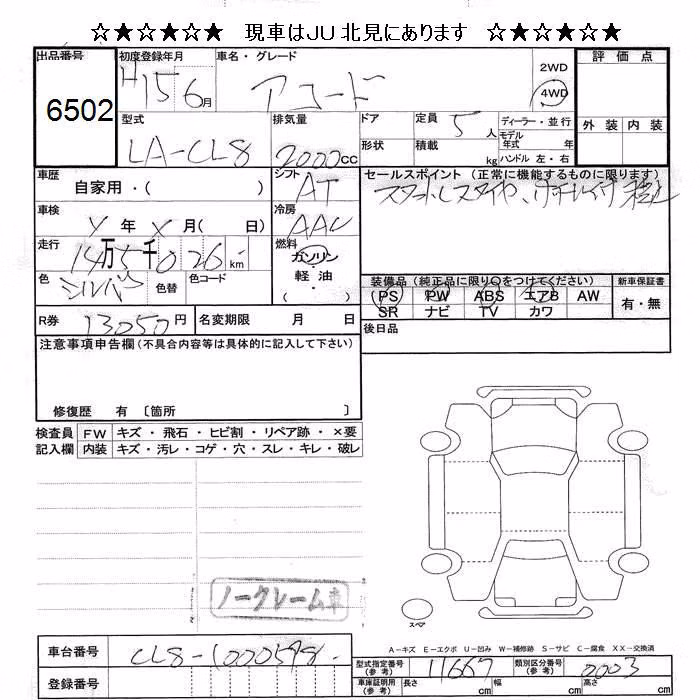 ☆★☆★☆★ 現車はJU北見にあります ☆★☆★☆★
出品番号 初度登録年月 車名・グレード 2WD 評価点
6502 H15 6月 アコード 4WD
型式 排気量 ドア 定員 5人 ディーラー・並行 外装 内装
LA-CL8 2000cc 形状 積載 kg モデル年式 年
ハンドル 左・右
車歴 自家用・( ) シフト AT セールスポイント (正常に機能するものに限ります)
車検 y年 x月( 日) 冷房 AAC
走行 14万5千026km 燃料 ガソリン
軽・油
( )
色 シルバー 色替 色コード 装備品(純正品に限り〇をつけてください) 新車保証書
PS PW ABS エアB AW 有・無
SR ナビ TV カワ
R券 13050円 名変期限 月 日 後日品
注意事項申告欄(不具合内容等は具体的に記入して下さい)
修復歴 有 〔箇所 〕
検査員 FW キズ・飛石・ヒビ割・リペア跡・×要
記入欄 内装 キズ・汚レ・コゲ・穴・スレ・キレ・破レ
ノークレーム車
スペア
A-キズ E-エクボ U-凹み W-補修跡 S-サビ C-腐食 XX-交換済
車台番号 CL8-1000598 型式指定番号(参考) 11667 類別区分番号(参考) 0003
登録番号 車庫証明用(参考) 長さ cm 幅 cm 高さ cm